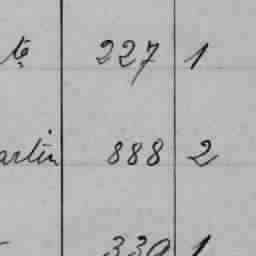 te 227 1
artin 888 2
330 1